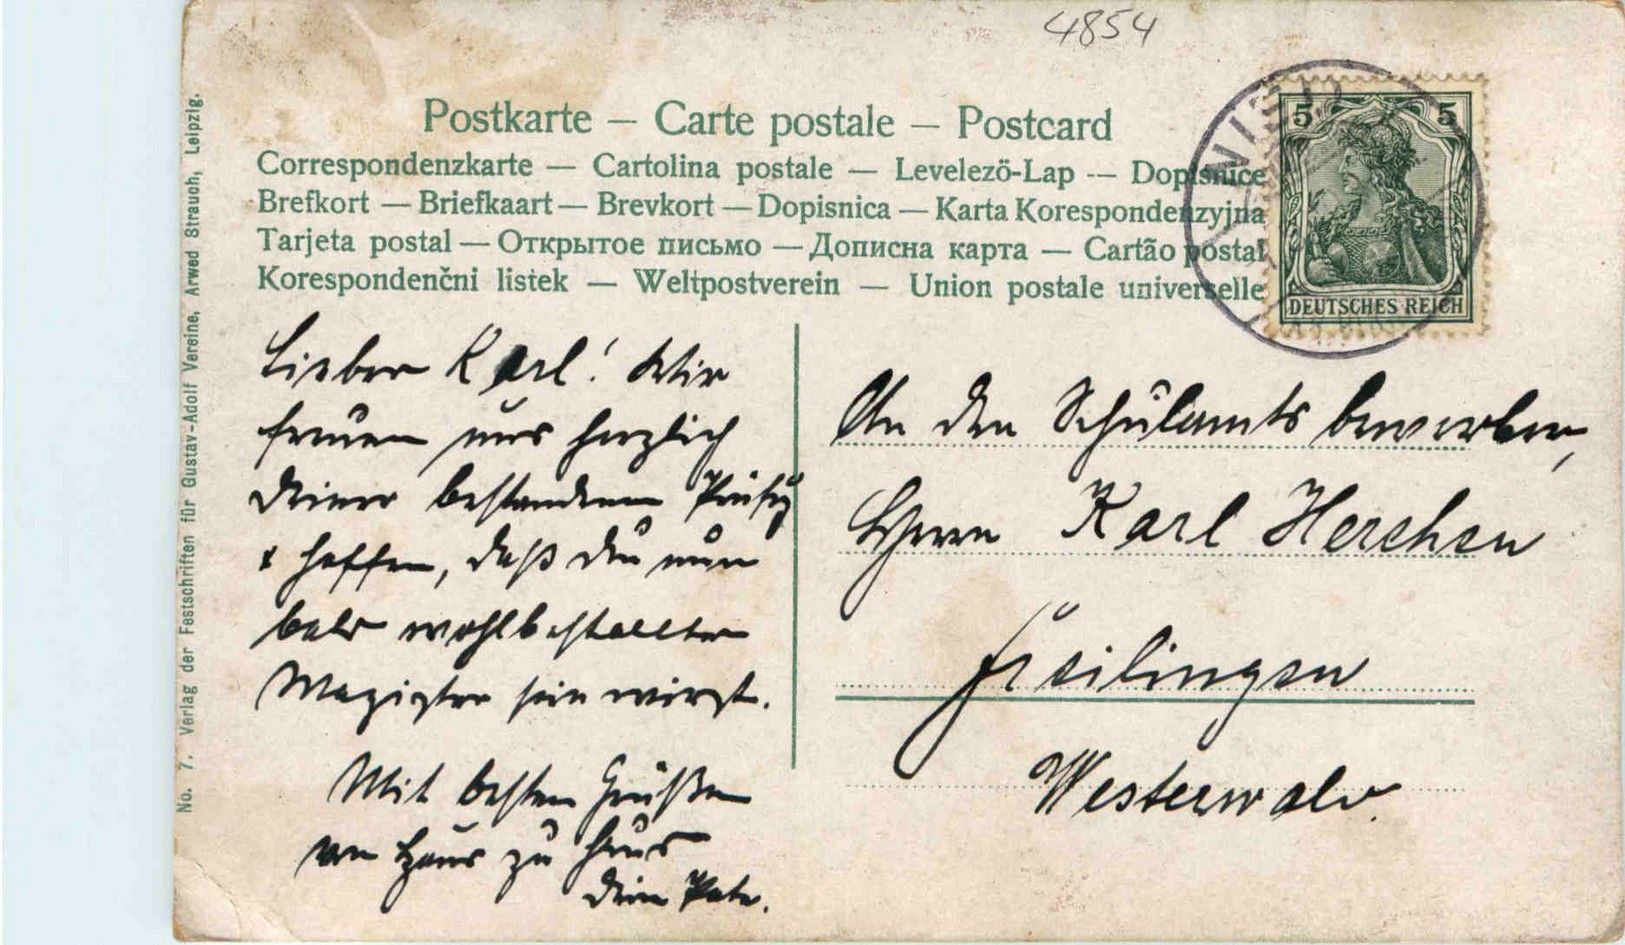 4854
Postkarte – Carte postale – Postcard
Correspondenzkarte — Cartolina postale — Levelezö-Lap -- Dopisnice
Brefkort — Briefkaart — Brevkort — Dopisnica — Karta Korespondenzyjna
Tarjeta postal — Открытое письмо — Дописна карта — Cartão postal
Korespondenčni listek — Weltpostverein — Union postale universelle
5 5
DEUTSCHES REICH
No. 7. Verlag der Festschriften für Gustav-Adolf Vereine, Arwed Strauch, Leipzig.
Lieber Karl! Wir
freuen uns herzlich
Deiner bestandenen Prüfg
& hoffen, daß Du nun
bald wohlbestallter
Magister sein wirst.
Mit besten Grüßen
von Haus zu Haus
Dein Pate.
An den Schulamtsbewerber,
Herrn Karl Herchen
Freilingen
Westerwald.